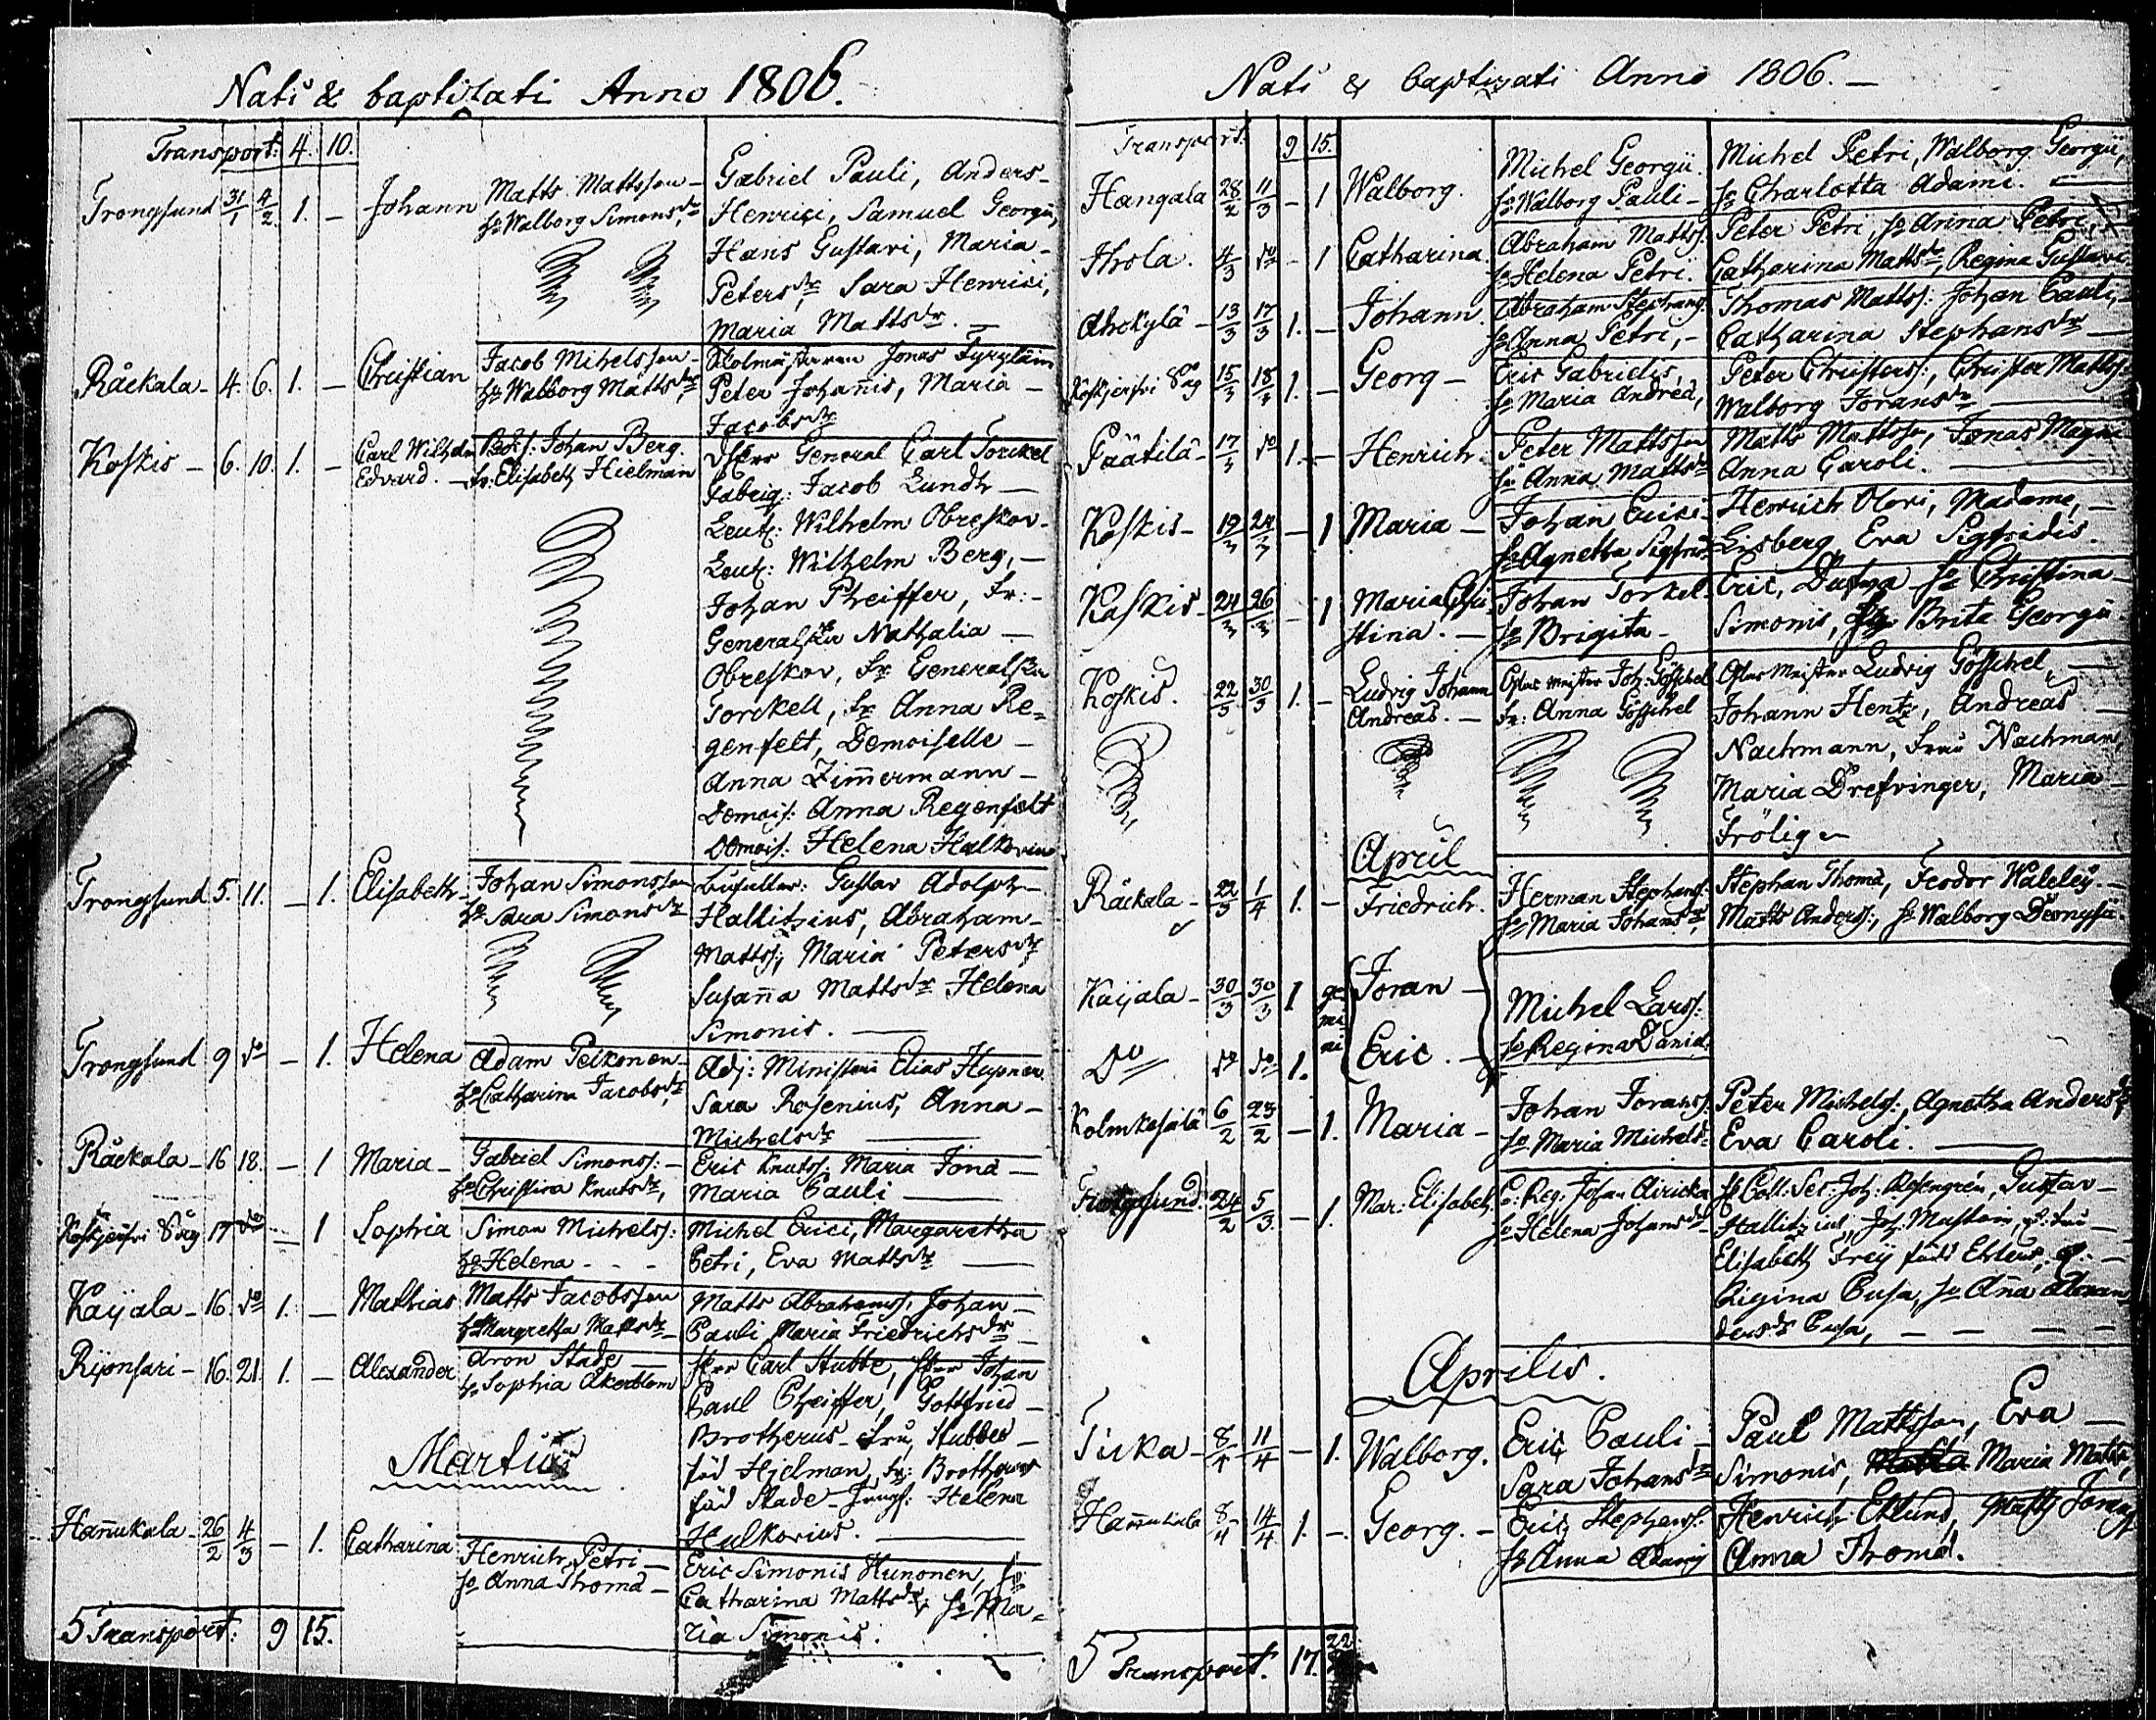 Nati & baptizati Anno 1806.
Transport: 4. 10.
Trongsund 31/1 4/2 1. — Johann Matts Mattsson — Gabriel Pauli, Anders —
h:o Walborg Simonsd:r Henrici, Samuel Georgii,
Hans Gustavi, Maria —
Petersd:r Sara Henrici,
Maria Mattsd:r —
Råckala — 4. 6. 1. — Christian Jacob Michelsson — Skolmästaren Jonas
h:o Walborg Mattsd:r Peter Johannis, Maria —
Jacobsd:r
Koskis — 6. 10. 1. — Carl Wilhelm Bokh: Johan Berg. General Carl Torckel
Edvard. — Fr: Elisabeth Hielman Fabriq: Jacob Lundh —
Leut: Wilhelm Obreskov —
Leut: Wilhelm Berg, —
Johan Pheiffer, Fr: —
Generalskan Nathalia —
Obreskov, Fr: Generalskan
Torckell, Fr Anna Re=
genfelt, Demoiselle —
Anna Zimmermann —
Demois: Anna Regenfelt
Demois: Helena
Trongsund 5. 11. — 1. Elisabeth Johan Simonsson Gustav Adolph —
h:o Sara Simonsd:r Hallitzius, Abraham —
Matts:, Maria Petersd:r
Susanna Mattsd:r Helena
Simonis. —
Trongsund 9 d:o — 1. Helena Adam Peikonen Adj: Ministerii Elias
h:o Catharina Jacobsd:r Sara Rosenius, Anna —
Michelsd:r —
Råckala — 16 18. — 1 Maria — Gabriel Simons: — Eric Knuts: Maria Jonæ —
h:o Christina Knutsd:r, Maria Pauli —
Koskijerfvi Såg 17 d:o — 1 Sophia Simon Michels: Michel Erici, Margaretha
h:o Helena - - - Petri, Eva Mattsd:r —
Kaijala — 16. d:o 1. — Mathias Matts Jacobsson Matts Abrahams: Johan —
h:o Margretha Mattsd:r Pauli Maria Friedrichsd:r
— 16. 21. 1. — Alexander Aron Stade — Herr Carl Stubbe, Herr Johan
h:o Sophia Åkerblom Paul Pheiffer, Gottfried —
Brotherus — Fru Stubbe —
Martius född Hjelman, Fr: Brotherus
född Stade — Jungf: Helena
Hannukala — 26/2 4/3 — 1. Catharina Henrich Petri — Hulkovius. —
h:o Anna Thomæ — Eric Simonis Hunonen, h:o
Catharina Mattsd:r, h:o Ma=
ria Simonis.
5 Transport: 9 15.
Nati & baptizati Anno 1806. —
Transport: 9 15.
Hangala 28/2 11/3 — 1 Walborg. Michel Georgii. Michel Petri, Walborg Georgii,
h:o Walborg Pauli — h:o Charlotta Adami. —
Ihola. 4/3 d:o — 1 Catharina. Abraham Matts: Peter Petri, h:o Anna Petri,
h:o Helena Petri. Catharina Mattsd:r, Regina Gustavi
Ahokylä — 13/3 17/3 1. — Johann. Abraham Stephans: Thomas Matts: Johan Pauli,
h:o Anna Petri, — Catharina Stephansd:r —
Koskijerfvi Såg 15/3 18/3 1. — Georg — Eric Gabrielis, Peter Christers:, Christer Matts:
h:o Maria Andreæ, Walborg Joransd:r —
Päätilä — 17/3 d:o 1. — Henrich. Peter Mattsson Matts Mattss:, Jonas Magni
h:o Anna Mattsd:r Anna Caroli. —
Koskis — 19/3 24/3 — 1 Maria — Johan Erici — Henrich Olovi, Madame, —
h:o Agnetha Sigfrid: Lisberg Eva Sigfridis.
Koskis — 24/3 26/3 — 1 Maria Chri Johan Torkel. Eric, h:o Christina —
stina. — h:o Brigita — Simonis, Brita Georgii
Koskis. 22/3 30/3 1. — Ludvig Johann Glas Meister Joh: Göschel Glas Meister Ludvig Göschel, —
Andreas. — Fr: Anna Göschel Johann Hentz, Andreas —
Nachmann, Frau Nachmann
Maria Drefvinger, Maria —
Frölig —
April
Råckala — 22/3 1/4 1. — Friedrich. Herman Stephans: Stephan Thomæ, Feodor —
h:o Maria Johansd:r Matts Anders:, h:o Walborg Dionysii
Kaijala — 30/3 30/3 1 ge Joran — Michel Lars:
mi
D:o d:o d:o 1. ni Eric. — h:o Regina Daniel:
6/2 23/2 — 1. Maria — Johan Jorans: Peter Michels:, Agnetha Andersd:r
h:o Maria Michelsd: Eva Caroli. —
Trongsund 24/2 5/3 — 1. Mar: Elisabeth C: Reg: Johan Coll: Secr: Joh: Rosengrén, Gustav —
h:o Helena Johansd:r Hallitzius, Joh: —
Elisabeth Frey född
Regina Pusa, h:o Anna
dersd:r Pusa, — — — —
Aprilis.
Tiuka — 8/4 11/4 — 1. Walborg. Eric Pauli — Paul Mattsson, Eva —
Sara Johansd:r Simonis, Maria Matts:
Hannukala 8/4 14/4 1. — Georg. — Eric Stephans: Henrich Eklund, Matts Jorans:
h:o Anna Adami Anna Thomæ.
5 Transport. 17. 22